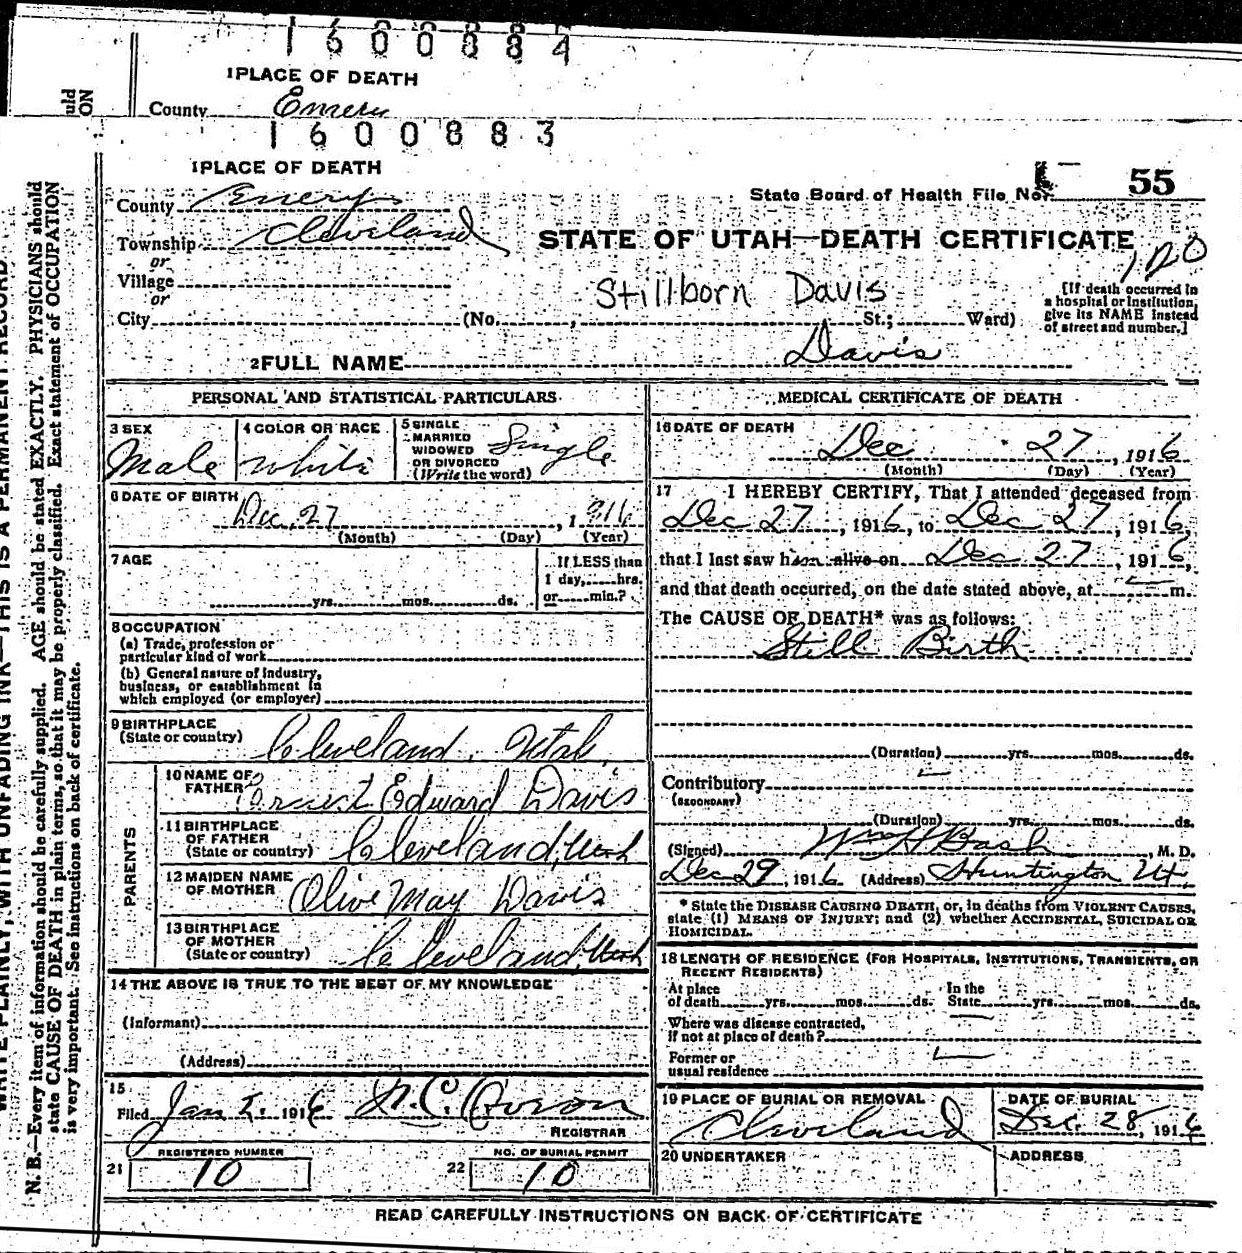 1600884
1 PLACE OF DEATH
County Emery
uld
ON
1600883
1 PLACE OF DEATH
State Board of Health File No. 55
County Emery
Township Cleveland
or
STATE OF UTAH—DEATH CERTIFICATE
Village
or
Stillborn Davis
[If death occurred in
a hospital or institution,
give its NAME instead
of street and number.]
City (No. , St.; Ward)
2 FULL NAME Davis
PERSONAL AND STATISTICAL PARTICULARS
3 SEX Male
4 COLOR OR RACE White
5 SINGLE
MARRIED
WIDOWED
OR DIVORCED
(Write the word) Single
6 DATE OF BIRTH
Dec. 27, 1916
(Month) (Day) (Year)
7 AGE
yrs. mos. ds.
If LESS than
1 day, hrs.
or min.?
8 OCCUPATION
(a) Trade, profession or
particular kind of work
(b) General nature of industry,
business, or establishment in
which employed (or employer)
9 BIRTHPLACE
(State or country) Cleveland, Utah
PARENTS
10 NAME OF
FATHER Edward Davis
11 BIRTHPLACE
OF FATHER
(State or country) Cleveland, Utah
12 MAIDEN NAME
OF MOTHER Olive May Davis
13 BIRTHPLACE
OF MOTHER
(State or country) Cleveland, Utah
14 THE ABOVE IS TRUE TO THE BEST OF MY KNOWLEDGE
(Informant)
(Address)
15
Filed Jan 1916
REGISTRAR
REGISTERED NUMBER
21 10
NO. OF BURIAL PERMIT
22 10
MEDICAL CERTIFICATE OF DEATH
16 DATE OF DEATH
Dec 27, 1916
(Month) (Day) (Year)
17 I HEREBY CERTIFY, That I attended deceased from
Dec 27, 1916, to Dec 27, 1916,
that I last saw him alive on Dec 27, 1916,
and that death occurred, on the date stated above, at m.
The CAUSE OF DEATH* was as follows:
Still Birth
(Duration) yrs. mos. ds.
Contributory
(SECONDARY)
(Duration) yrs. mos. ds.
(Signed) , M. D.
Dec 29, 1916 (Address) Huntington Ut.
* State the DISEASE CAUSING DEATH, or, in deaths from VIOLENT CAUSES,
state (1) MEANS OF INJURY; and (2) whether ACCIDENTAL, SUICIDAL OR
HOMICIDAL.
18 LENGTH OF RESIDENCE (FOR HOSPITALS, INSTITUTIONS, TRANSIENTS, OR
RECENT RESIDENTS)
At place
of death yrs. mos. ds. In the
State yrs. mos. ds.
Where was disease contracted,
if not at place of death?
Former or
usual residence
19 PLACE OF BURIAL OR REMOVAL
Cleveland
DATE OF BURIAL
Dec. 28, 1916
20 UNDERTAKER
ADDRESS
READ CAREFULLY INSTRUCTIONS ON BACK OF CERTIFICATE
WRITE PLAINLY, WITH UNFADING INK—THIS IS A PERMANENT RECORD
N. B.—Every item of information should be carefully supplied. AGE should be stated EXACTLY. PHYSICIANS should
state CAUSE OF DEATH in plain terms, so that it may be properly classified. Exact statement of OCCUPATION
is very important. See instructions on back of certificate.